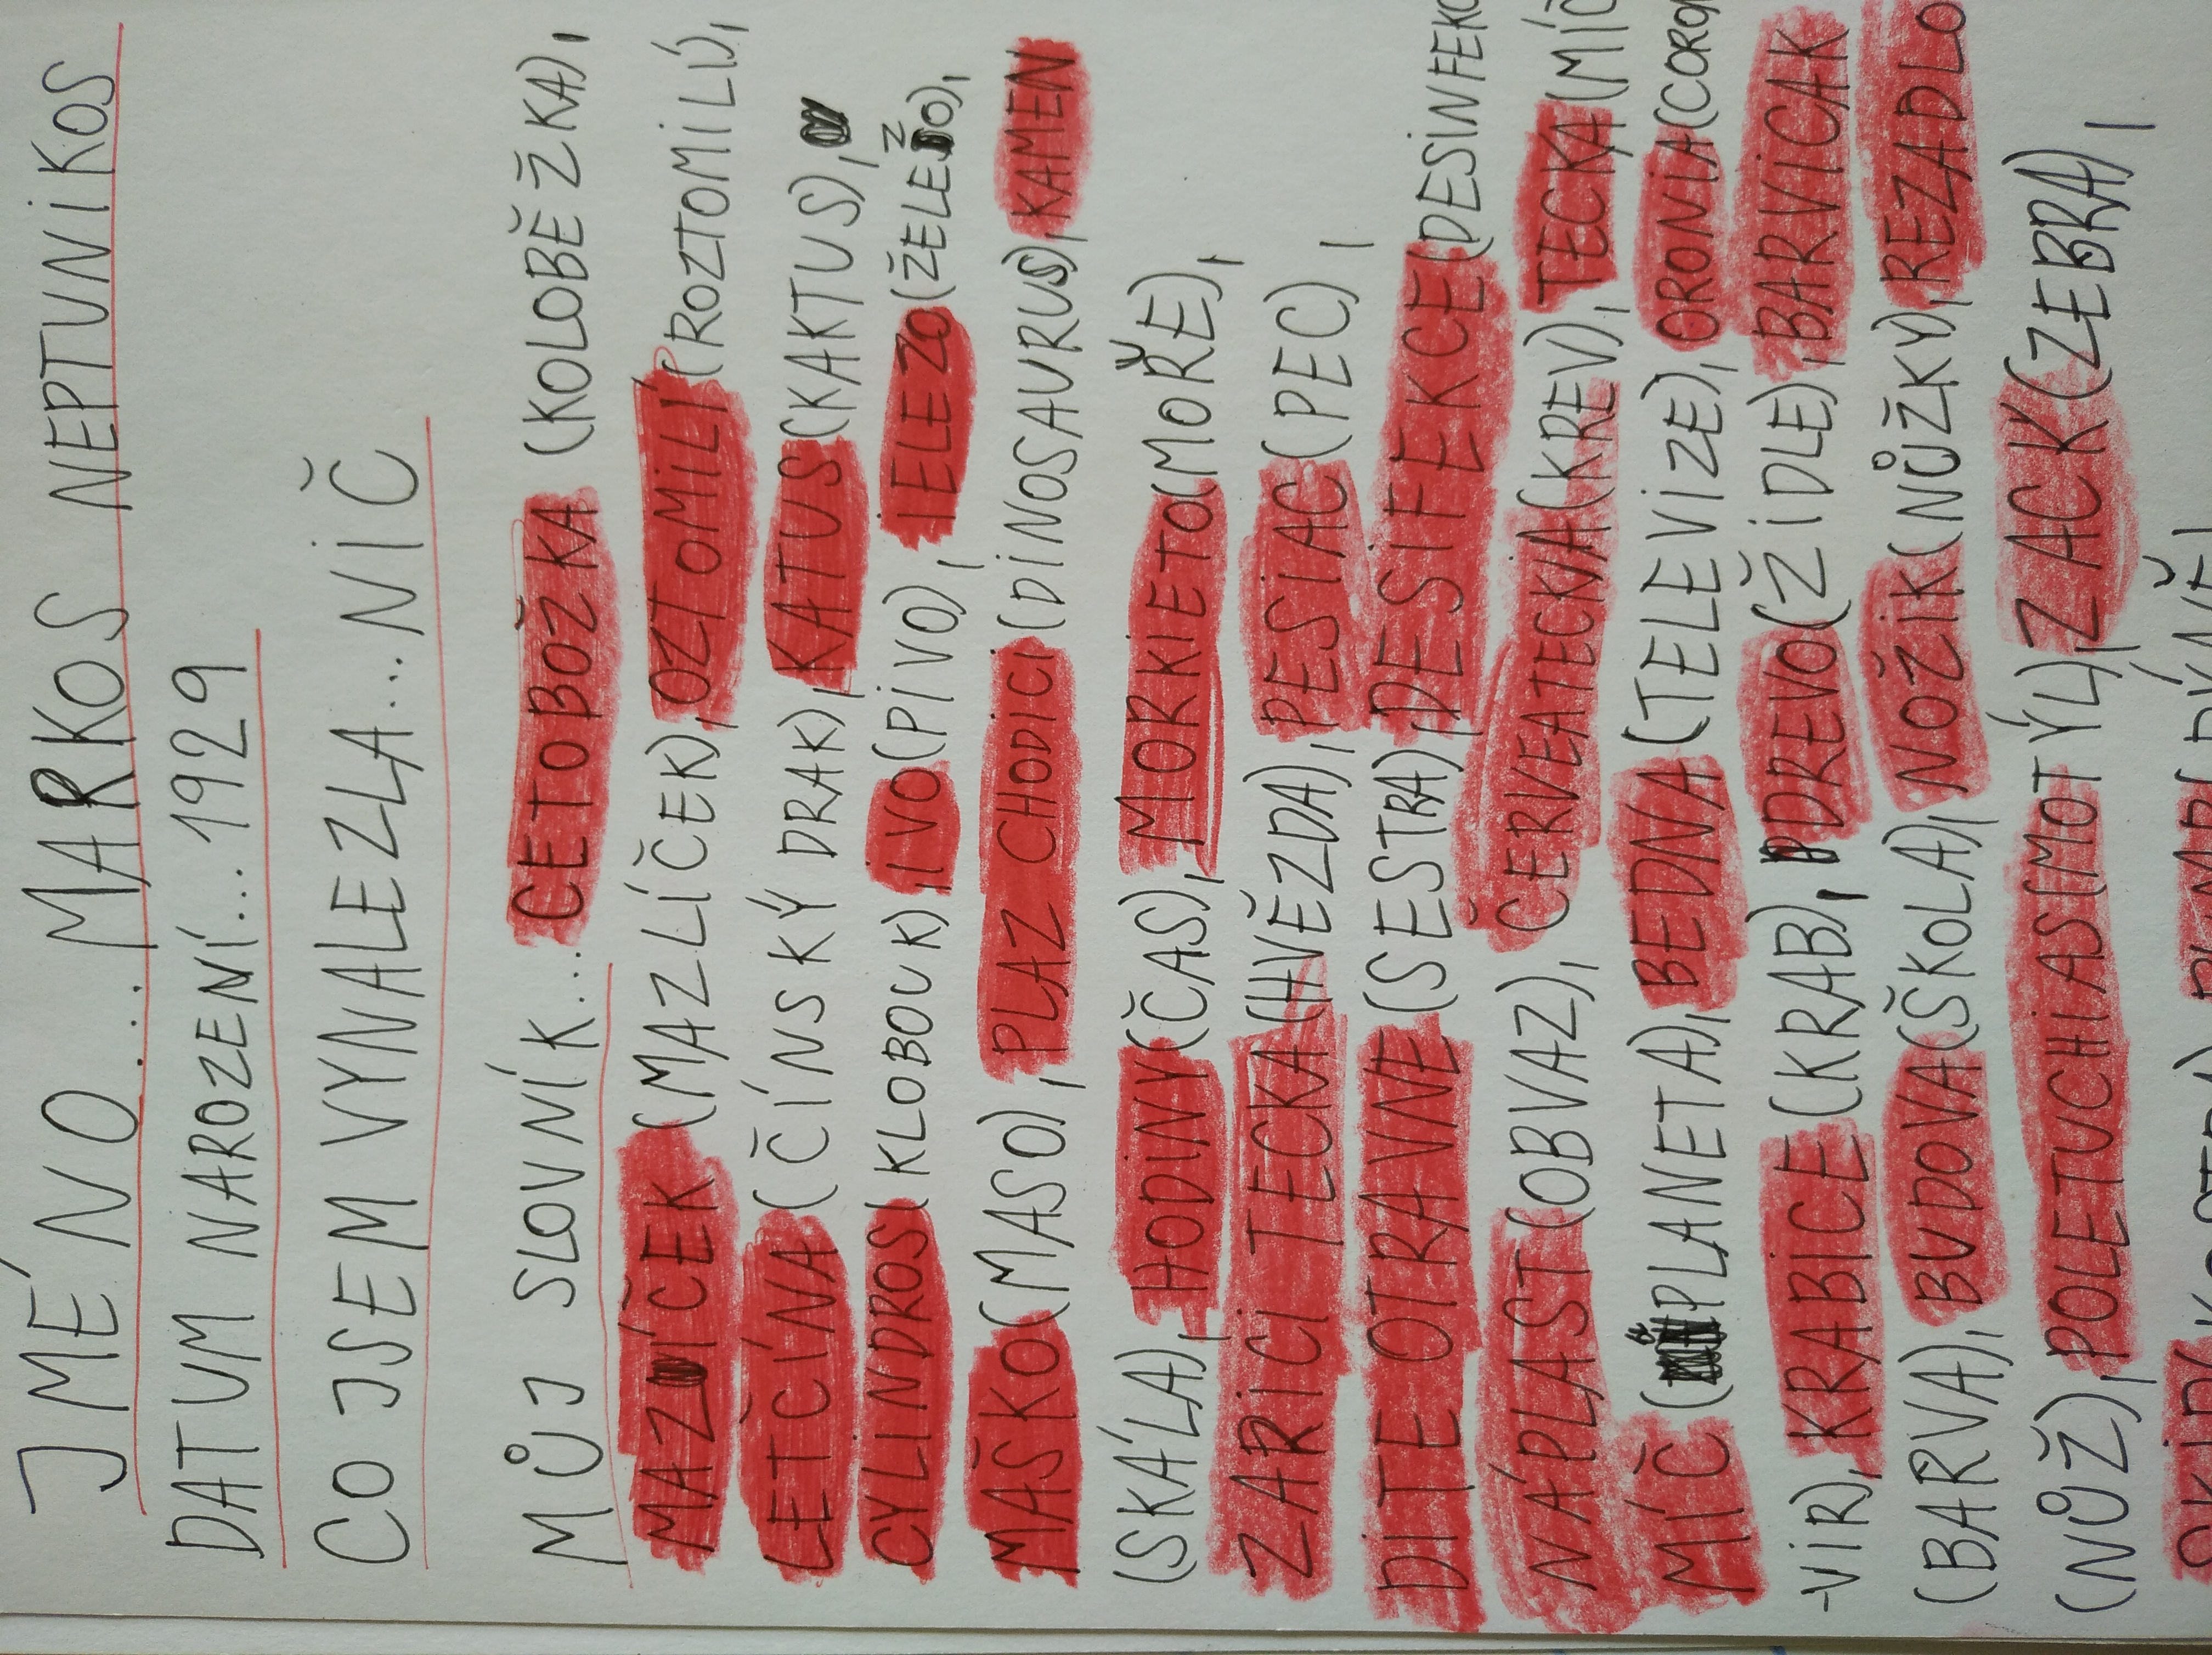 JMÉNO... MARKOS NEPTUNIKOS
DATUM NAROZENÍ...1929
CO JSEM VYNALEZLA...NIČ
MŮJ SLOVNÍK... CETOBOŽKA (KOLOBĚŽKA),
MAZÍČEK (MAZLÍČEK), OZTOMILÍ (ROZTOMILÍ),
LETČÍNA (ČÍNSKÝ DRAK), KATUS (KAKTUS),
CYLINDROS (KLOBOUK), IVO (PIVO), IELEZO (ŽELEZO),
MAŠKO (MASO), PLAZ CHODICI (DINOSAURUS), KAMEN
(SKÁLA), HODINY (ČAS), MORKIETO (MOŘE),
ZARICI TECKA (HVĚZDA), PESIAC (PEC),
DITE OTRAVNE (SESTRA), DESIFEKCE (DESINFEKC
NÁPLAST (OBVAZ), ČERVEATECKIA (KREV), TECKA (MÍČ
MÍČ (PLANETA), BEDNA (TELEVIZE), ORONIA (CORO
-VIR), KRABICE (KRAB), DREVO (ŽIDLE), BARVICAK
(BARVA), BUDOVA (ŠKOLA), NOŽIK (NŮŽKY), REZADLO
(NŮŽ), POLETUCHIAS (MOTÝL), ZACK (ZEBRA),